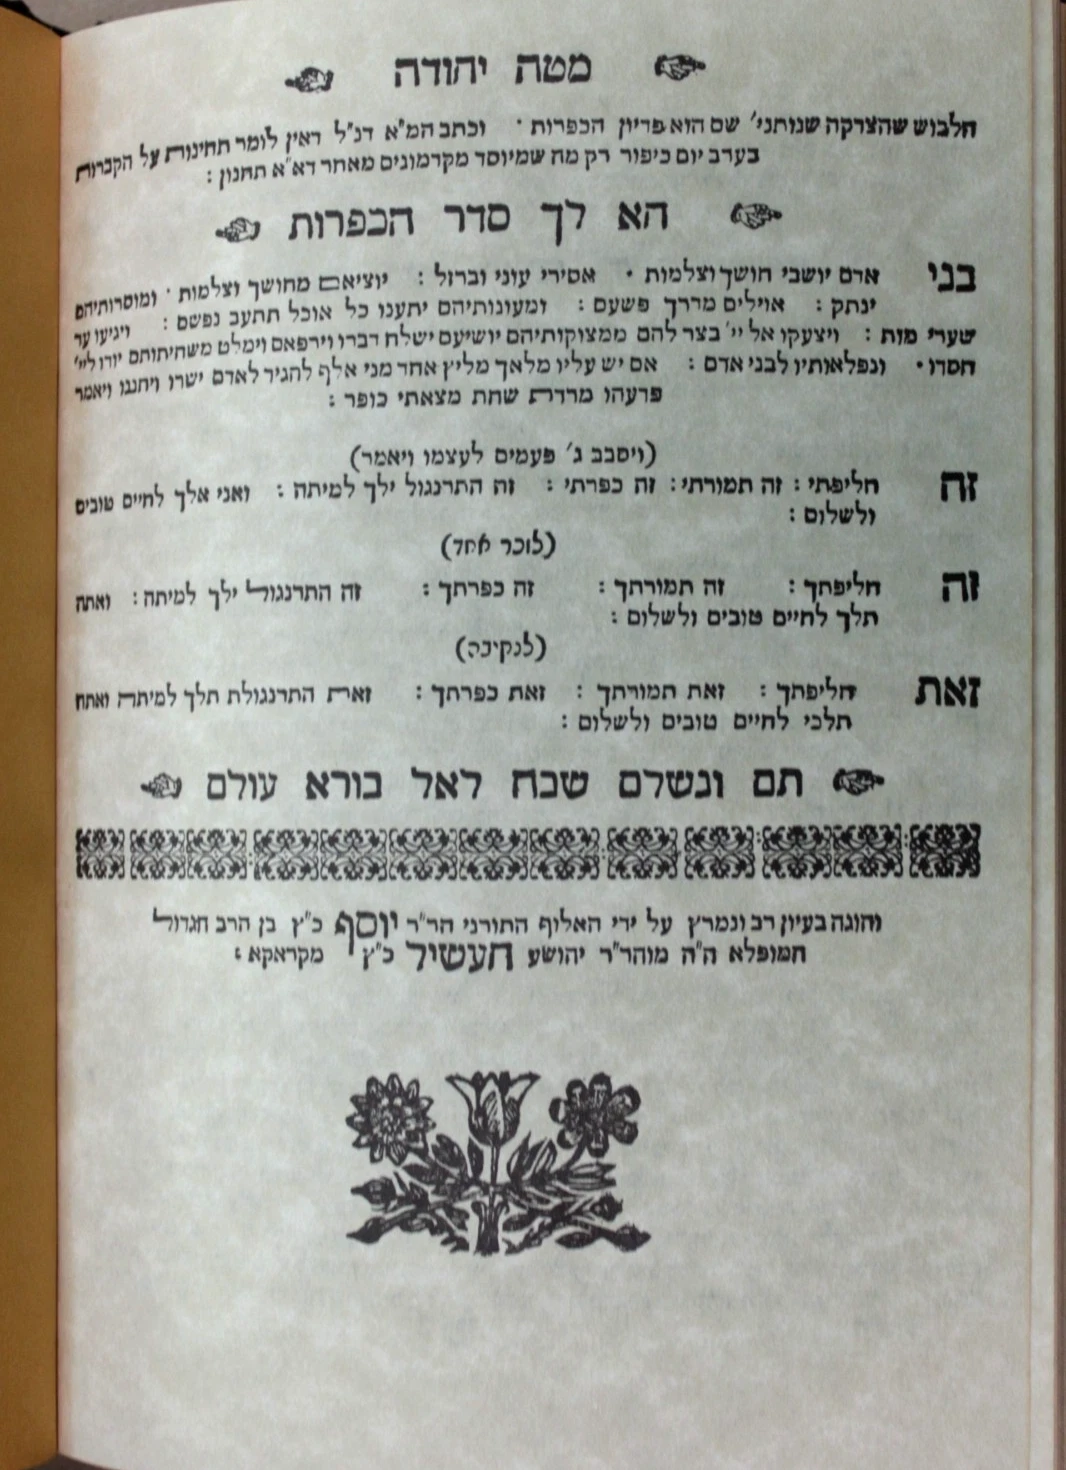 מטה יהודה
הלבוש שהצדקה שנותני׳ שם הוא פדיון הכפרות · וכתב המ״א דנ״ל דאין לומר תחינות על הקברות
בערב יום כיפור רק מה שמיוסד מקדמונים מאחר דא״א תחנון :
הא לך סדר הכפרות
בני אדם יושבי חושך וצלמות · אסירי עוני וברזל : יוציאם מחושך וצלמות · ומוסרותיהם
ינתק : אוילים מדרך פשעם : ומעונותיהם יתענו כל אוכל תתעב נפשם : ויגיעו עד
שערי מות : ויצעקו אל יי׳ בצר להם ממצוקותיהם יושיעם ישלח דברו וירפאם וימלט משחיתותם יודו ליי׳
חסדו · ונפלאותיו לבני אדם : אם יש עליו מלאך מליץ אחד מני אלף להגיד לאדם ישרו ויחננו ויאמר
פדעהו מרדת שחת מצאתי כופר :
(ויסבב ג׳ פעמים לעצמו ויאמר)
זה חליפתי : זה תמורתי : זה כפרתי : זה התרנגול ילך למיתה : ואני אלך לחיים טובים
ולשלום :
(לזכר אחד)
זה חליפתך : זה תמורתך : זה כפרתך : זה התרנגול ילך למיתה : ואתה
תלך לחיים טובים ולשלום :
(לנקיבה)
זאת חליפתך : זאת תמורתך : זאת כפרתך : זאת התרנגולת תלך למיתה ואתה
תלכי לחיים טובים ולשלום :
תם ונשלם שבח לאל בורא עולם
והוגה בעיון רב ונמרץ על ידי האלוף התורני הר״ר יוסף כ״ץ בן הרב הגדול
המופלא ה״ה מוהר״ר יהושע העשיל כ״ץ מקראקא :